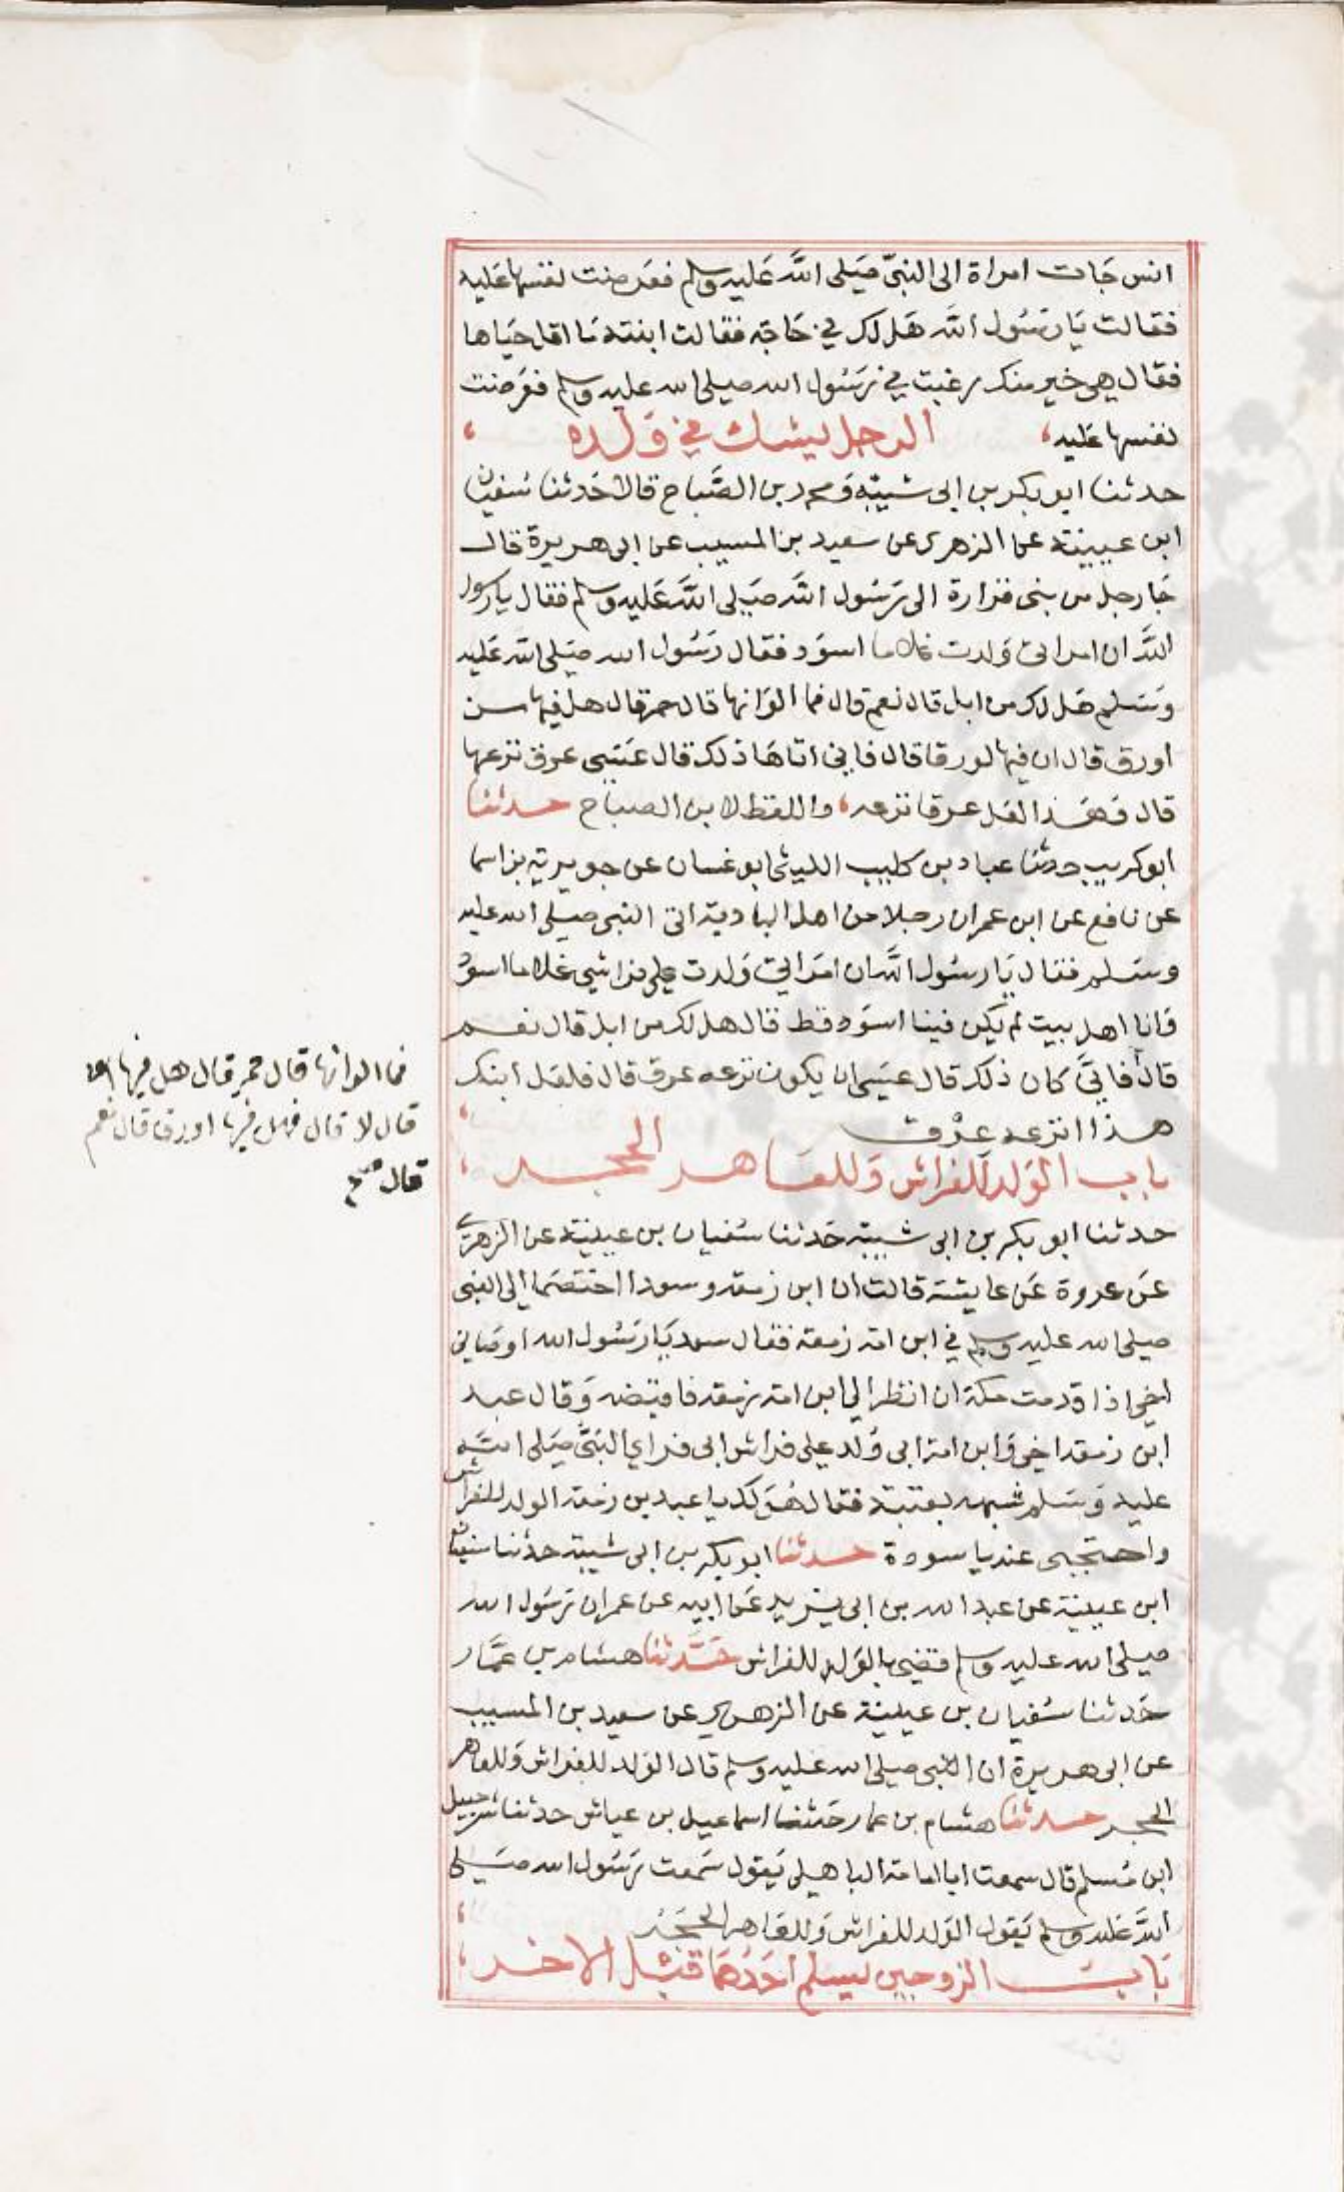 انس جات امراة الى النبيّ صَلى اللَّه عَليه وسلم فعرضت نفسها عَليه
فقالت يَا رسُول اللَّه هَل لك في حَاجة فقالت ابنته مَا اقل حيَاها
فقال هي خير منك رغبت في رَسُول الله صلى الله عليه وسلم فعَرضت
نفسها عَليه، الرجل يشك في وَلده ،
حدثنا ابو بكر بن ابى شيبة وَمحمد بن الصَّباح قالا حَدثنا سُفين
ابن عيينة عن الزهرى عن سعيد بن المسيب عن ابى هريرة قال
جَا رجل من بنى فزارة الى رَسُول اللَّه صَلى اللَّه عَليه وسلم فقال يا رسول
اللَّه ان امراتى وَلدت غلاما اسوَد فقال رَسُول الله صَلى اللَّه عَليه
وَسَلم هَل لك من ابل قال نعم قال فما الوَانها قال حمر قال هل فيها من
اورق قال ان فيها لورقا قال فانى اتاهَا ذلك قال عَسَى عرق نزعها
قال وَهَذا لعل عرقا نزعه، واللفظ لابن الصباح حدثنا
ابو كريب حدثنا عباد بن كليب الليثى ابو غسان عن جويرية بن اسما
عن نافع عن ابن عمر ان رجلا من اهل البادية اتى النبى صلى الله عليه
وسَلم فقال يَا رسُول اللَّه ان امرَاتى وَلدت على فراشي غلاما اسود
وَانا اهل بيت لم يكن فينا اسوَد قط قال هل لك من ابل قال نعم
قال فانَّى كان ذلك قال عَسَى ان يكون نزعه عرق قال فلعَل ابنك
هذا انزعه عرْق ،
فما الوانها قال حمر قال هل فيها اسود
قال لا قال فهل فيها اورق قال نعم
قال صح
باب الوَلد للفراش وَللعَاهر الحجر ،
حدثنا ابو بكر بن ابى شيبة حَدثنا سُفيان بن عيينة عن الزهرى
عَن عروة عَن عايشة قالت ان ابن زمعة وسعدا اختصَما الى النبى
صلى الله عليه وسلم في ابن امة زمعة فقال سعد يَا رسُول الله اوصَانى
اخى اذا قدمت مكة ان انظر الى ابن امة زمعة فاقبضه وَقال عبد
ابن زمعة اخى وَابن امة ابى وُلد على فراش ابى فراى النبيَّ صَلى اللَّه
عليه وَسَلم شبهه بعتبة فقال هُوَ لك يا عبد بن زمعة الولد للفراش
واحتجبى عنه يا سودة حدثنا ابو بكر بن ابى شيبة حدثنا سفين
ابن عيينة عن عبد الله بن ابى يزيد عَن ابيه عن عمر ان رَسُول الله
صلى الله عليه وسلم قضى بالوَلد للفراش حَدَّثنا هشام بن عمَّار
حَدثنا سُفيان بن عيينة عن الزهرى عن سعيد بن المسيب
عن ابى هريرة ان النبى صلى الله عليه وسلم قال الوَلد للفراش وَللعاهر
الحجر حدثنا هشام بن عمار حدثنا اسماعيل بن عياش حدثنا شرحبيل
ابن مُسلم قال سمعت ابا امامة الباهلى يَقول سَمعت رَسُول الله صَلى
اللَّه عَليه وسلم يَقول الوَلد للفراش وَللعَاهر الحجَر ،
بَاب الزوجين يسلم احَدُهمَا قبْل الاخر ،